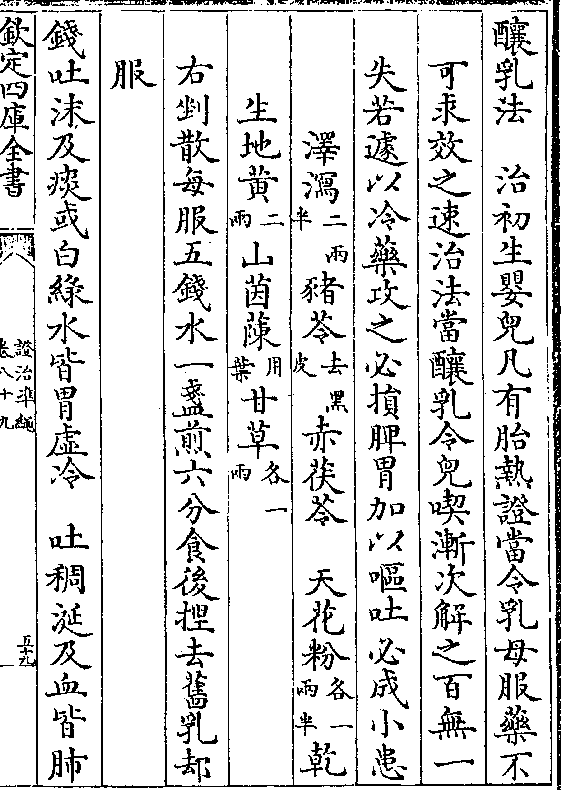 釀乳法　治初生嬰兒凡有胎熱證當令乳母服藥不
可求效之速治法當釀乳令兒喫漸次解之百無一
失若遽以冷藥攻之必損脾胃加以嘔吐必成小患
澤瀉二兩半豬苓去黑皮赤茯苓　天花粉各一兩半乾
生地黄二兩山茵蔯用葉甘草各一兩
右剉散每服五錢水一盞煎六分食後揑去舊乳却
服
錢吐沫及痰或白緑水皆胃虛冷　吐稠涎及血皆肺
欽定四庫全書
證治凖繩
卷八十九
五十九